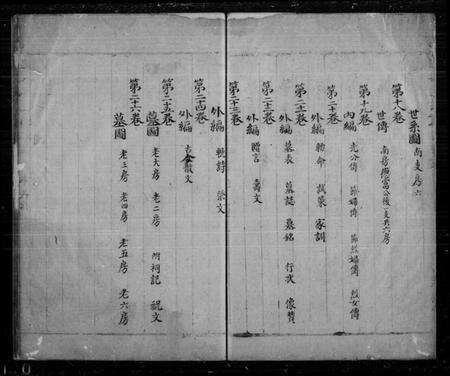 世系圖 南支房六
第十八卷
世傳 南房 富公後支共六房
第十九卷
內編 先公傳 節婦傳 節烈婦傳 烈女傳
第二十卷
外編 勅命 試策 家訓
第二十一卷
外編 墓表 墓誌 墓銘 行次 像贊
第二十二卷
外編 贈言 壽文
第二十三卷
外編 輓詩 祭文
第二十四卷
外編 古 散文
第二十五卷
墓圖 老大房 老二房 附祠記 祝文
第二十六卷
墓圖 老三房 老四房 老五房 老六房